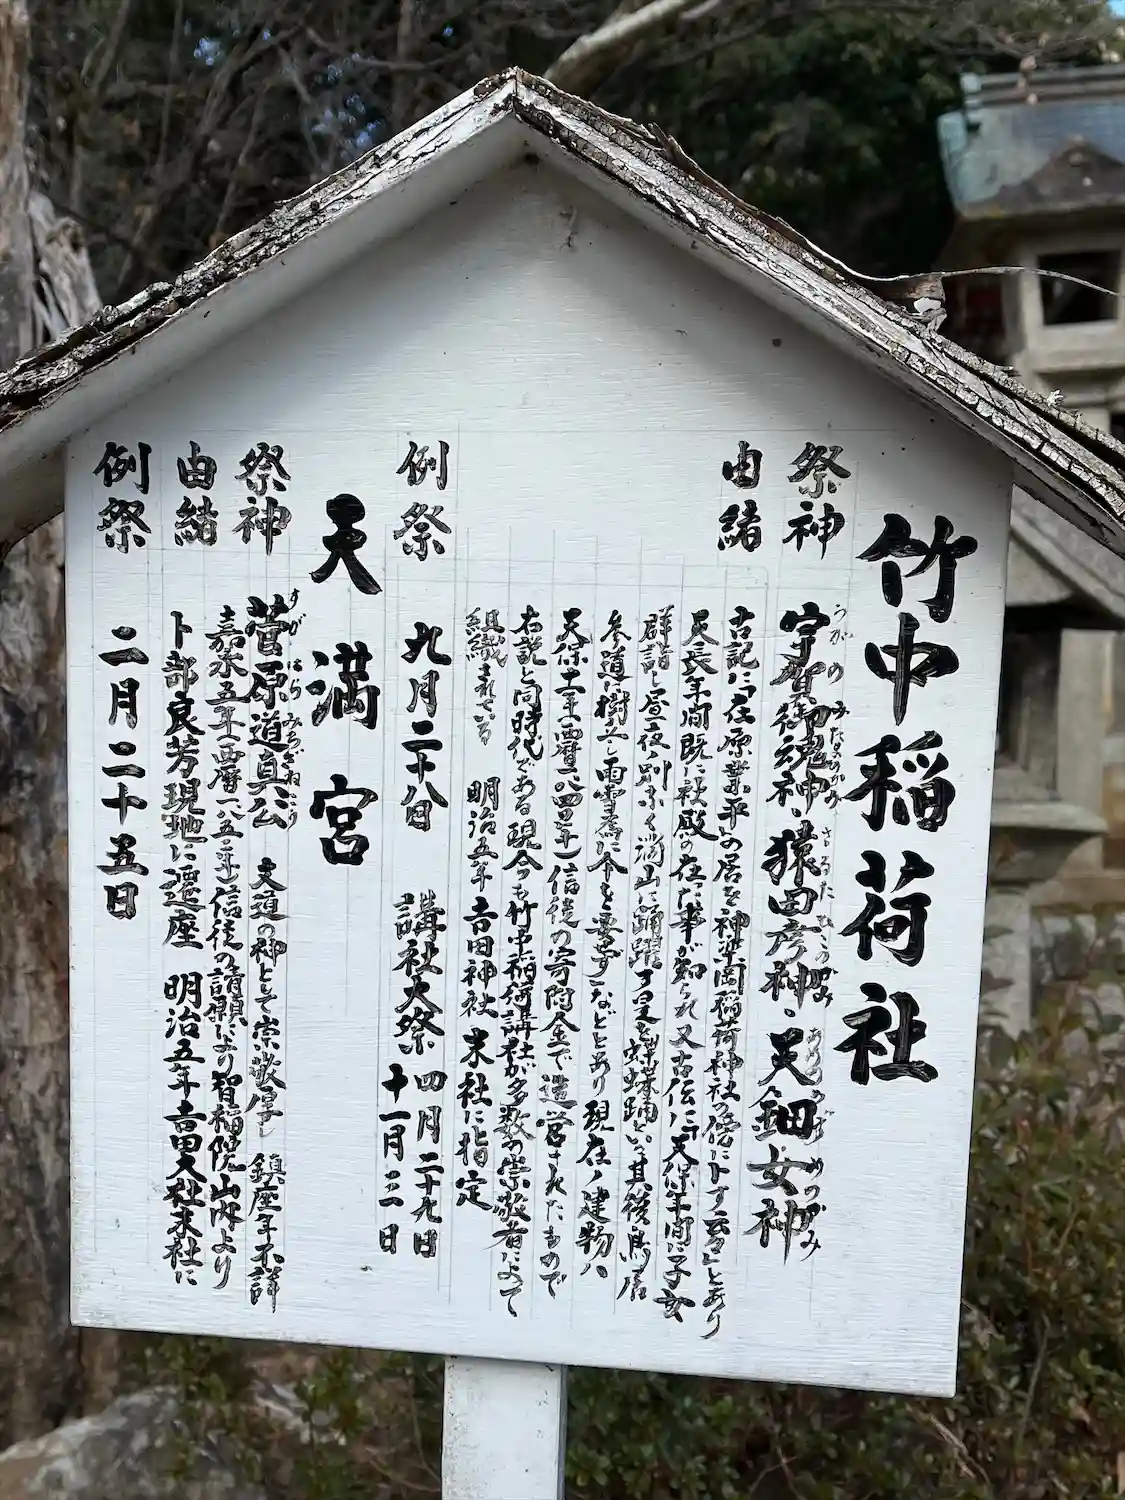 竹中稲荷社
祭神 宇賀御魂神・猿田彦神・天鈿女神
うがのみたまのかみ さるたひこのかみ あめのうずめのかみ
由緒 古記に「在原業平の居を神楽岡稲荷神社の傍に卜す云々」とあり
天長年間既に社殿の在った事が知られ 又古伝に「天保年間に子女
群詣し昼夜の別なく満山に踊躍す是を蝶蝶踊といふ其後鳥居
参道に樹立し雨雪為に傘を要せず」などとあり現在ノ建物ハ
天保十一年(西暦一八四〇年)信徒の寄附金で造営されたもので
右説と同時代である現今も竹中稲荷講社が多数の崇敬者によって
組織されている 明治五年 吉田神社 末社に指定
例祭 九月二十八日 講社大祭 四月二十九日
十一月三日
天満宮
祭神 菅原道真公 文道の神として崇敬厚し 鎮座年不詳
すがはらみちざねこう
由緒 嘉永五年(西暦一八五二年)信徒の請願により智福院山内より
卜部良芳現地に遷座 明治五年吉田大社末社に
例祭 二月二十五日